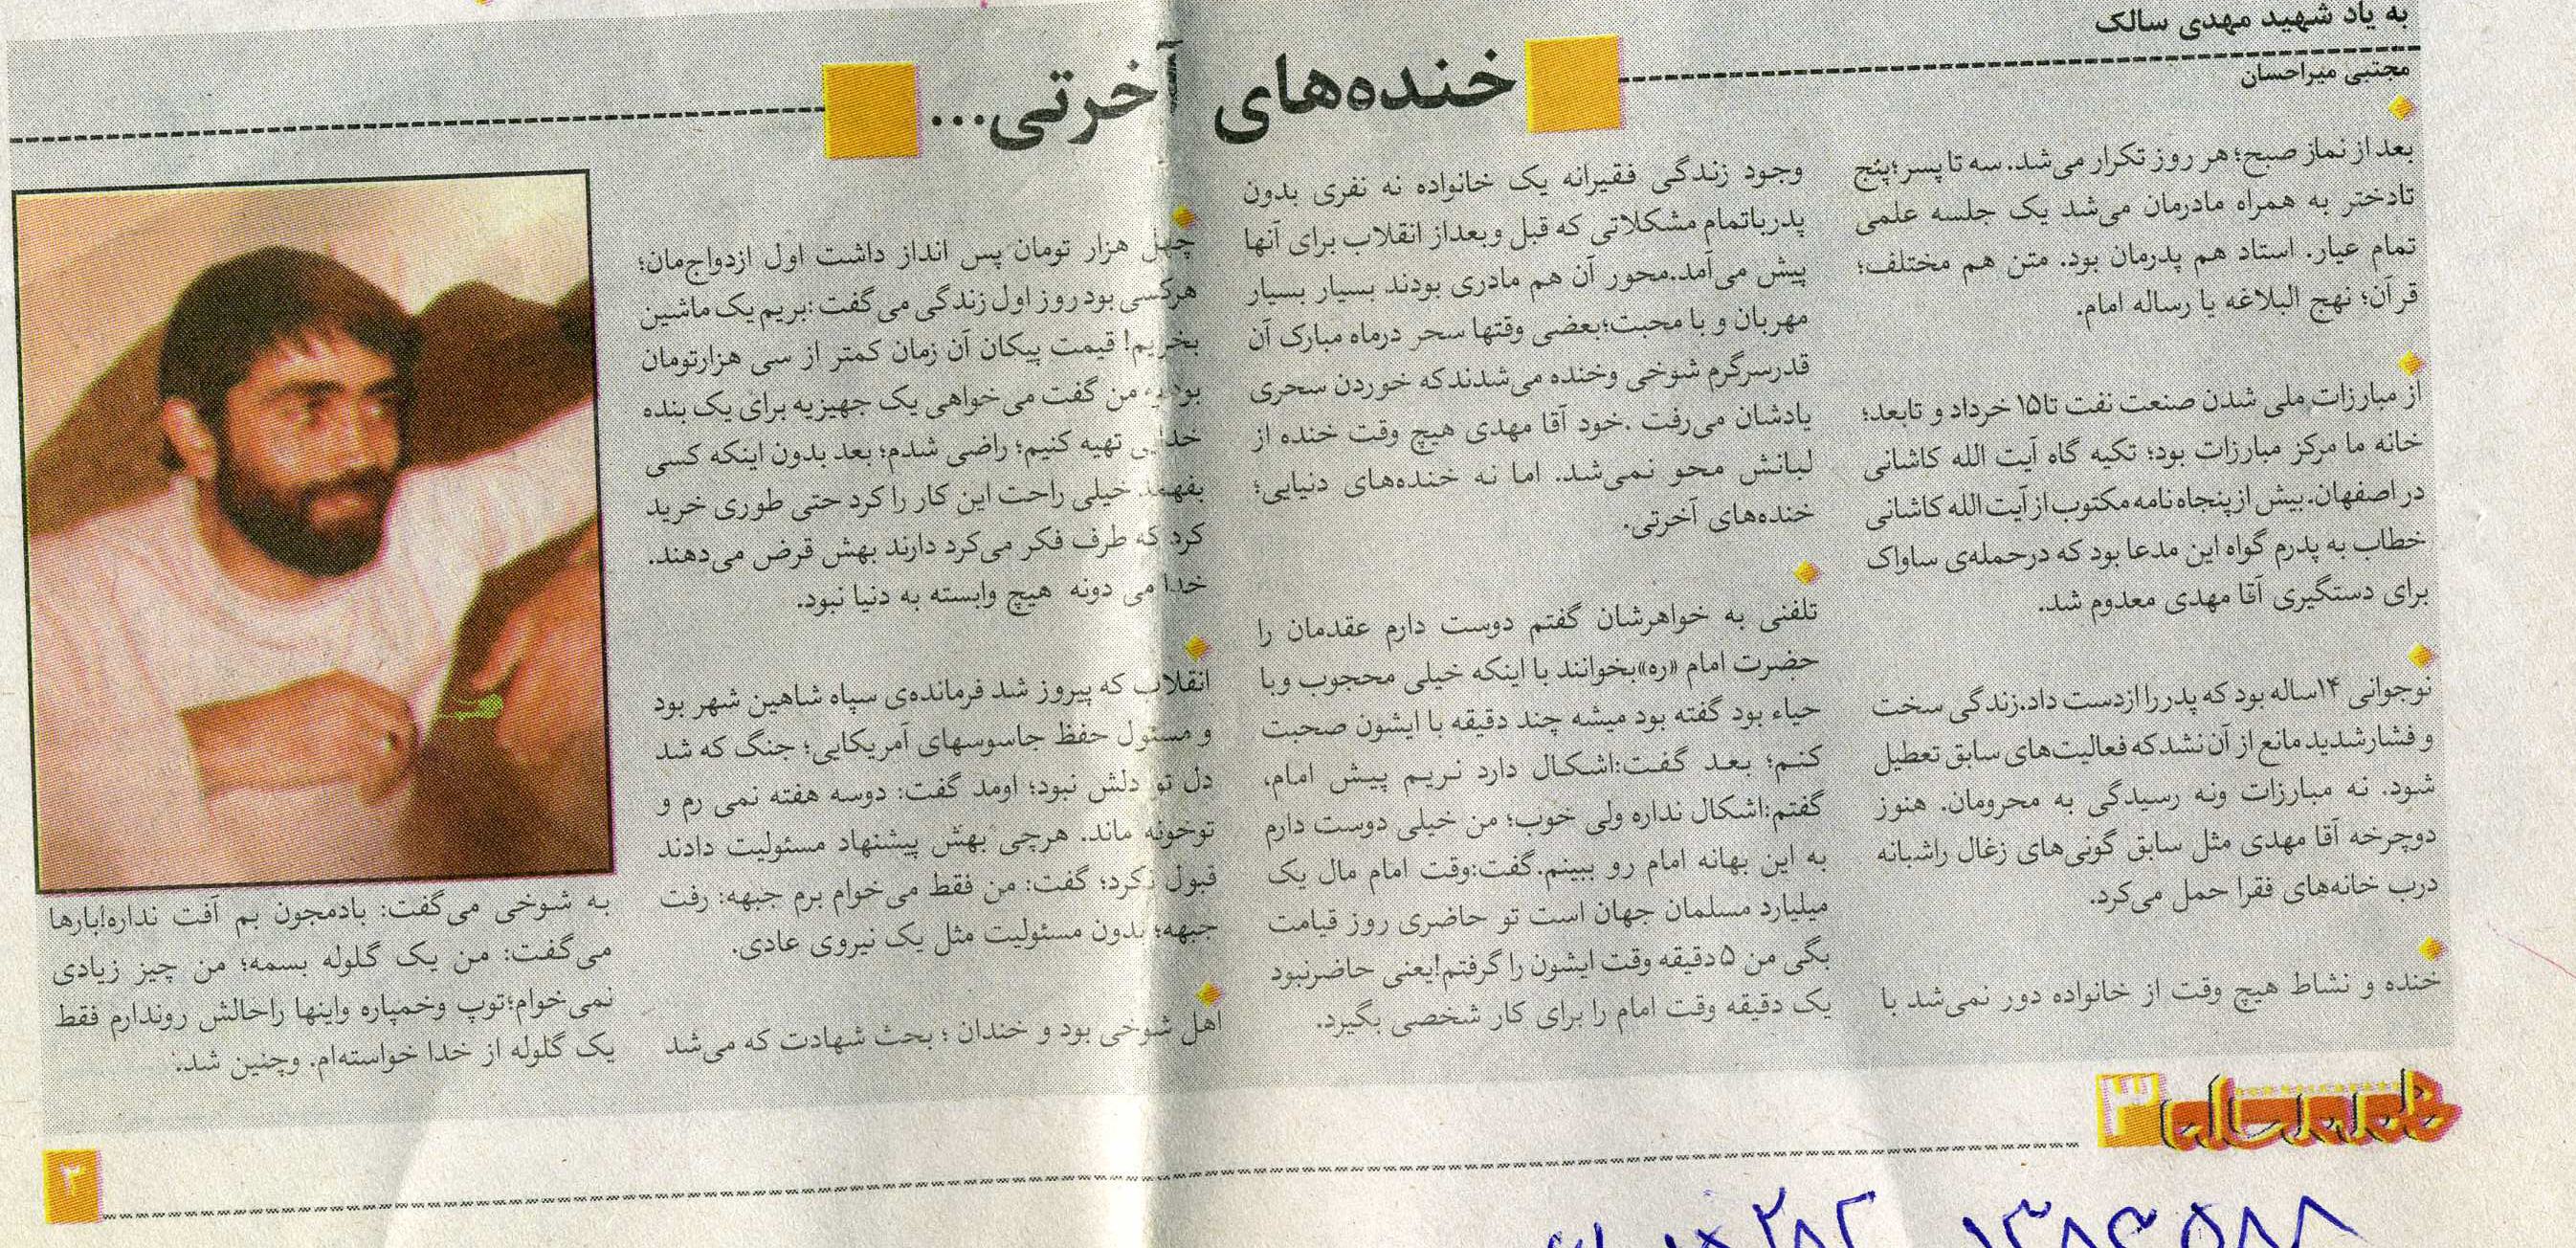 به یاد شهید مهدی سالک
خنده‌های آخرتی...
مجتبی میراحسان
بعد از نماز صبح؛ هر روز تکرار می‌شد. سه تا پسر؛ پنج
تا دختر به همراه مادرمان می‌شد یک جلسه علمی
تمام عیار. استاد هم پدرمان بود. متن هم مختلف؛
قرآن؛ نهج البلاغه یا رساله امام.
از مبارزات ملی شدن صنعت نفت تا ۱۵ خرداد و تابعد؛
خانه ما مرکز مبارزات بود؛ تکیه گاه آیت الله کاشانی
در اصفهان. بیش از پنجاه نامه مکتوب از آیت الله کاشانی
خطاب به پدرم گواه این مدعا بود که درحمله‌ی ساواک
برای دستگیری آقا مهدی معدوم شد.
نوجوانی ۱۴ساله بود که پدر را از دست داد. زندگی سخت
و فشار شدید مانع از آن نشد که فعالیت‌های سابق تعطیل
شود. نه مبارزات ونه رسیدگی به محرومان. هنوز
دوچرخه آقا مهدی مثل سابق گونی‌های زغال راشبانه
درب خانه‌های فقرا حمل می‌کرد.
خنده و نشاط هیچ وقت از خانواده دور نمی‌شد با
وجود زندگی فقیرانه یک خانواده نه نفری بدون
پدرباتمام مشکلاتی که قبل وبعداز انقلاب برای آنها
پیش می‌آمد.محور آن هم مادری بودند بسیار بسیار
مهربان و با محبت؛بعضی وقتها سحر درماه مبارک آن
قدرسرگرم شوخی وخنده می‌شدندکه خوردن سحری
یادشان می‌رفت .خود آقا مهدی هیچ وقت خنده از
لبانش محو نمی‌شد. اما نه خنده‌های دنیایی؛
خنده‌های آخرتی.
تلفنی به خواهرشان گفتم دوست دارم عقدمان را
حضرت امام «ره»بخوانند با اینکه خیلی محجوب وبا
حیاء بود گفته بود میشه چند دقیقه با ایشون صحبت
کنم؛ بعد گفت:اشکال دارد نریم پیش امام،
گفتم:اشکال نداره ولی خوب؛ من خیلی دوست دارم
به این بهانه امام رو ببینم.گفت:وقت امام مال یک
میلیارد مسلمان جهان است تو حاضری روز قیامت
بگی من ۵ دقیقه وقت ایشون را گرفتم!یعنی حاضرنبود
یک دقیقه وقت امام را برای کار شخصی بگیرد.
چهل هزار تومان پس انداز داشت اول ازدواج‌مان؛
هرکسی بود روز اول زندگی می‌گفت :بریم یک ماشین
بخریم! قیمت پیکان آن زمان کمتر از سی هزارتومان
بود به من گفت می‌خواهی یک جهیزیه برای یک بنده
خدایی تهیه کنیم؛ راضی شدم؛ بعد بدون اینکه کسی
بفهمد خیلی راحت این کار را کرد حتی طوری خرید
کرد که طرف فکر می‌کرد دارند بهش قرض می‌دهند.
خدا می دونه هیچ وابسته به دنیا نبود.
انقلاب که پیروز شد فرمانده‌ی سپاه شاهین شهر بود
و مسئول حفظ جاسوسهای آمریکایی؛ جنگ که شد
دل تو دلش نبود؛ اومد گفت: دوسه هفته نمی رم و
توخونه ماند. هرچی بهش پیشنهاد مسئولیت دادند
قبول نکرد؛ گفت: من فقط می‌خوام برم جبهه: رفت
جبهه؛ بدون مسئولیت مثل یک نیروی عادی.
اهل شوخی بود و خندان ؛ بحث شهادت که می‌شد
به شوخی می‌گفت: بادمجون بم آفت نداره!بارها
می‌گفت: من یک گلوله بسمه؛ من چیز زیادی
نمی‌خوام؛توپ وخمپاره واینها راحالش روندارم فقط
یک گلوله از خدا خواسته‌ام. وچنین شد.
۳
۲